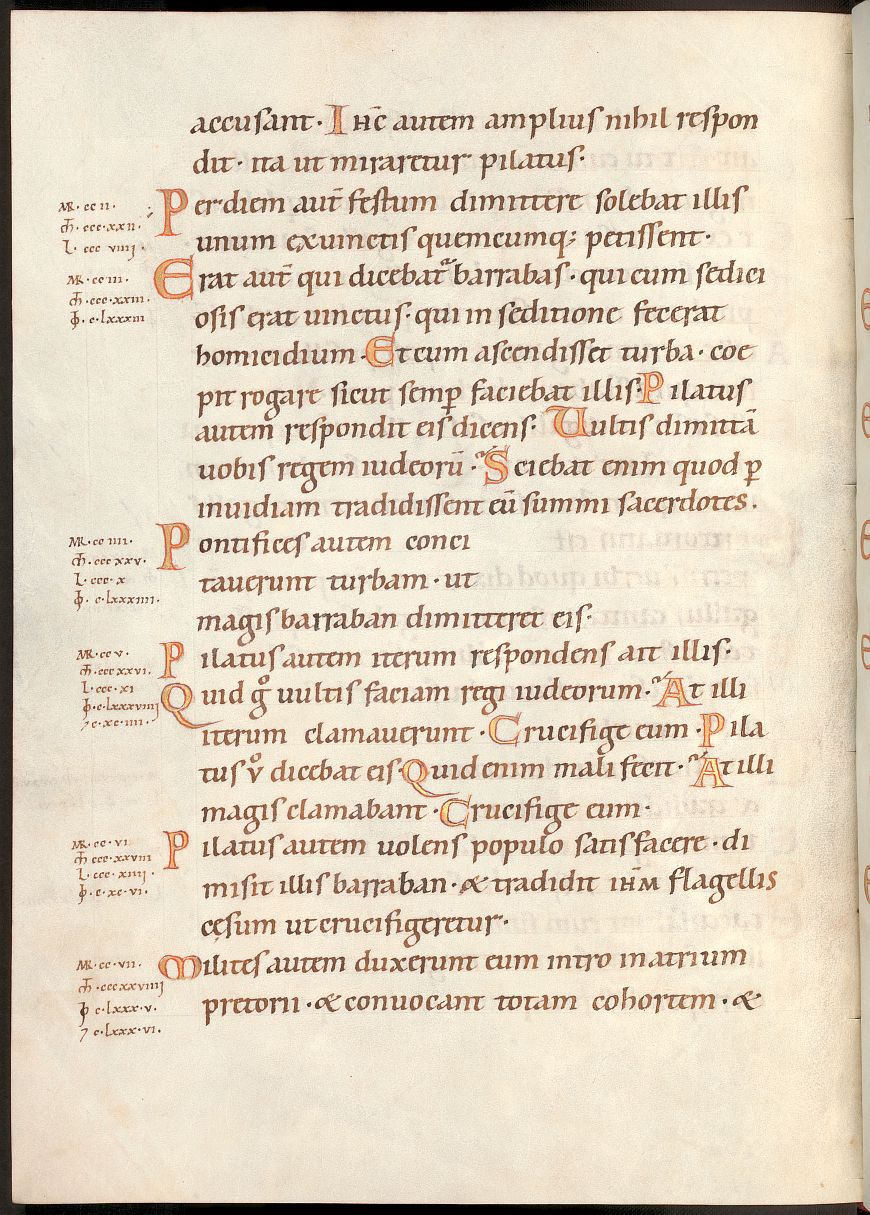 accusant· Ihc̄ autem amplius nihil respon
dit· ita ut miraretur pilatus·
MR·cc ii·
Per diem aut̄ festum dimittere solebat illis
m̄h·ccc·xxii·
l· ccc viiij·
unum ex uinctis quemcumq; petissent·
MR·cc iii·
Erat aut̄ qui dicebat᷑ barrabas· qui cum sedici
m̄h·ccc·xxiii·
ꝼ·c·lxxxiii
osis erat uinctus· qui in seditione fecerat
homicidium· Et cum ascendisset turba· coe
pit rogare sicut semꝑ faciebat illis· Pilatus
autem respondit eis dicens· Uultis dimittā
uobis regem iudeorū· Sciebat enim quod ꝑ
inuidiam tradidissent eū summi sacerdotes·
MR·cc iiii·
Pontifices autem conci
m̄h·ccc xxv·
l·ccc·x
tauerunt turbam· ut
ꝼ·c·lxxxiiii·
magis barraban dimitteret eis·
MR·cc v·
Pilatus autem iterum respondens ait illis·
m̄h·ccc xxvi·
l·ccc·xi
Quid gͦ uultis faciam regi iudeorum· At illi
ꝼ·c·lxxxviiij
⁊ c·xc·iiii·
iterum clamauerunt· Crucifige eum· Pila
tus uͦ dicebat eis· Quid enim mali fecit· At illi
magis clamabant· Crucifige eum·
MR·cc·vi·
Pilatus autem uolens populo satisfacere· di
m̄h ccc·xxviii
l·ccc·xiiij·
ꝼ·c·xc·vi·
misit illis barraban· & tradidit ihm̄ flagellis
cęsum ut crucifigeretur·
MR·cc·vii·
Milites autem duxerunt eum intro in atrium
m̄h·cccxxviiij
ꝼ c·lxxx·v·
pretorii· & conuocant totam cohortem· &
⁊ c·lxxx·vi·